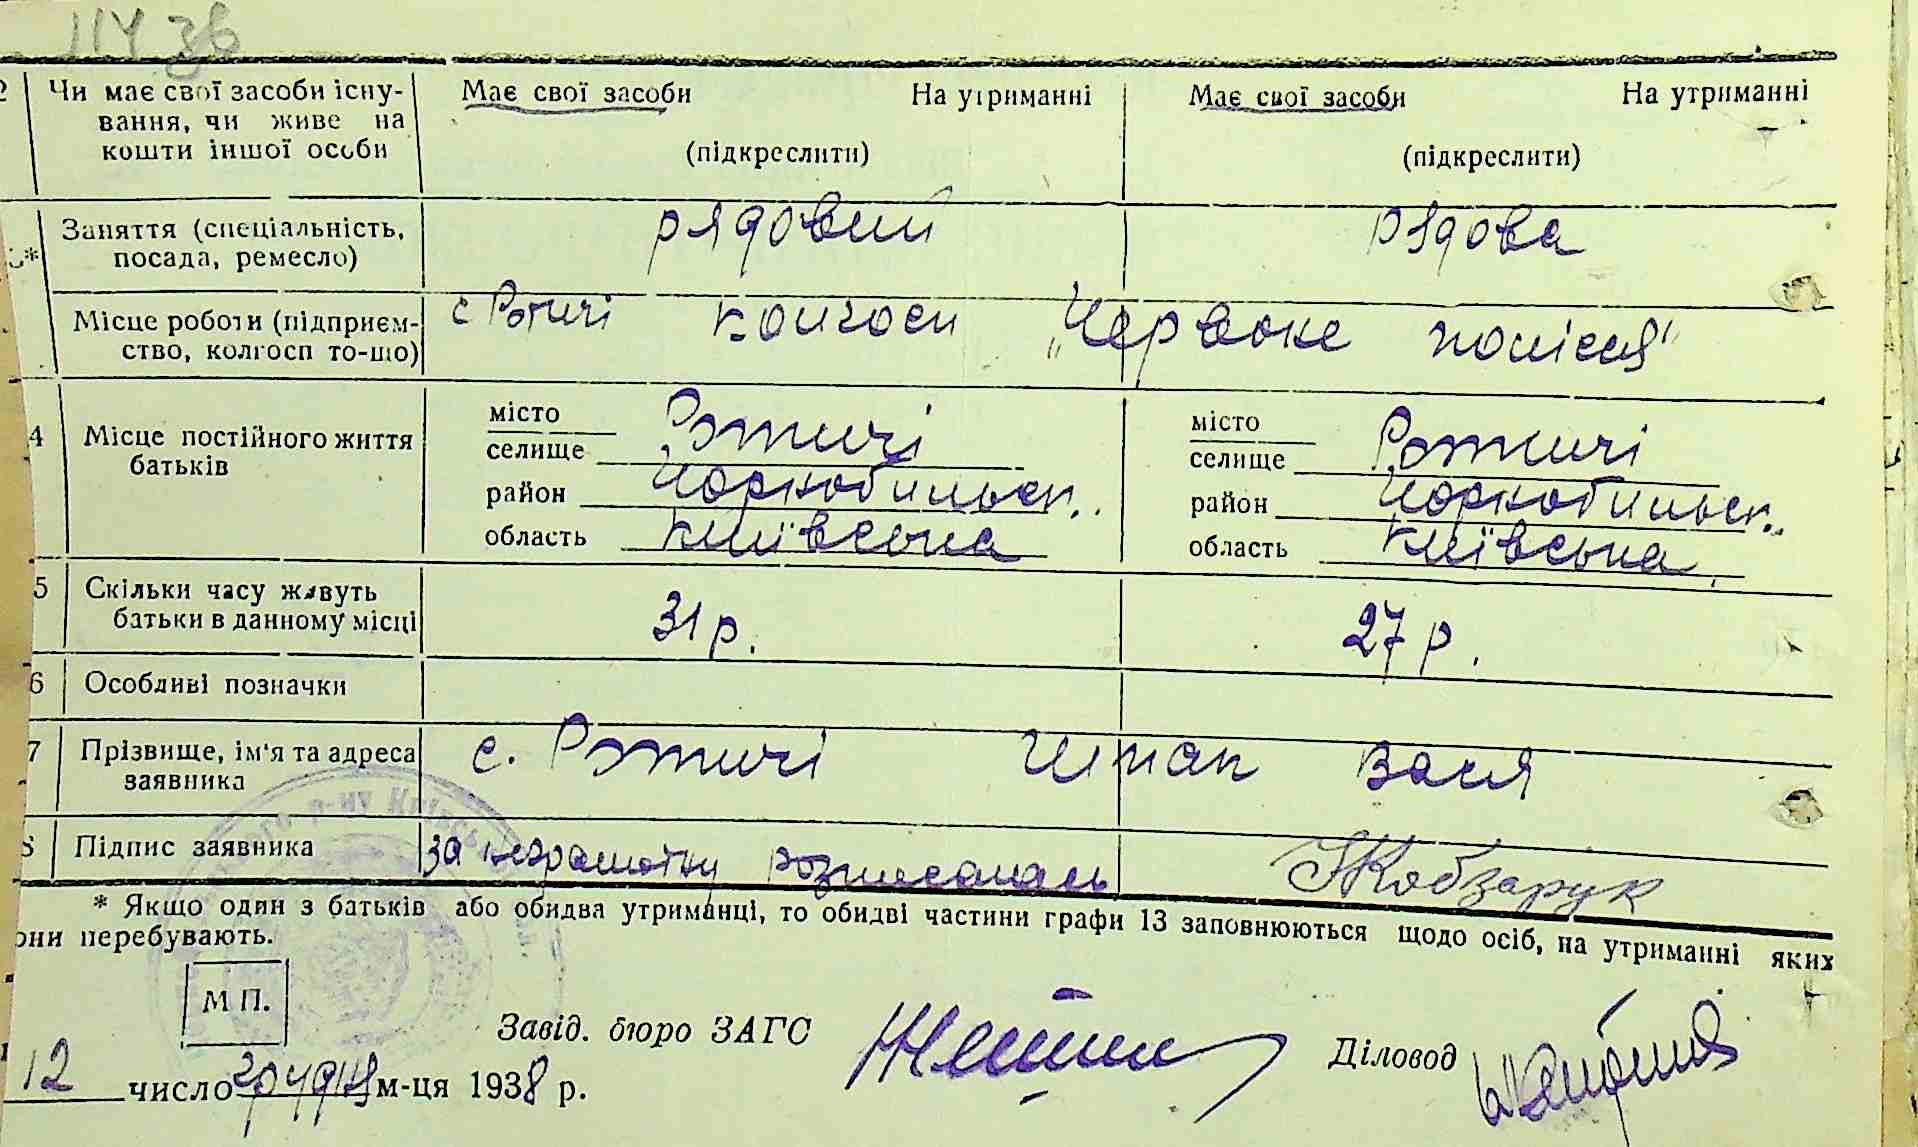 ПЧ 36
2 Чи має свої засоби існу-
вання, чи живе на
кошти іншої особи
Має свої засоби На утриманні
(підкреслити)
Має свої засоби На утриманні
(підкреслити)
Заняття (спеціальність,
посада, ремесло)
рядовий
рядова
Місце роботи (підприєм-
ство, колгосп то-що)
с Ротичі колгосп „Червоне полісся"
4 Місце постійного життя
батьків
місто
селище Ротичі
район Чорнобильск..
область Київська
місто
селище Ротичі
район Чорнобильск..
область Київська
5 Скільки часу живуть
батьки в данному місці
31 р.
27 р.
6 Особливі позначки
7 Прізвище, ім'я та адреса
заявника
с. Ротичі Шпак Вася
8 Підпис заявника
за неграмотну розписалась
Кобзарук
* Якщо один з батьків або обидва утриманці, то обидві частини графи 13 заповнюються щодо осіб, на утриманні яких
они перебувають.
М П.
Завід. бюро ЗАГС
Діловод
12 число м-ця 1938 р.